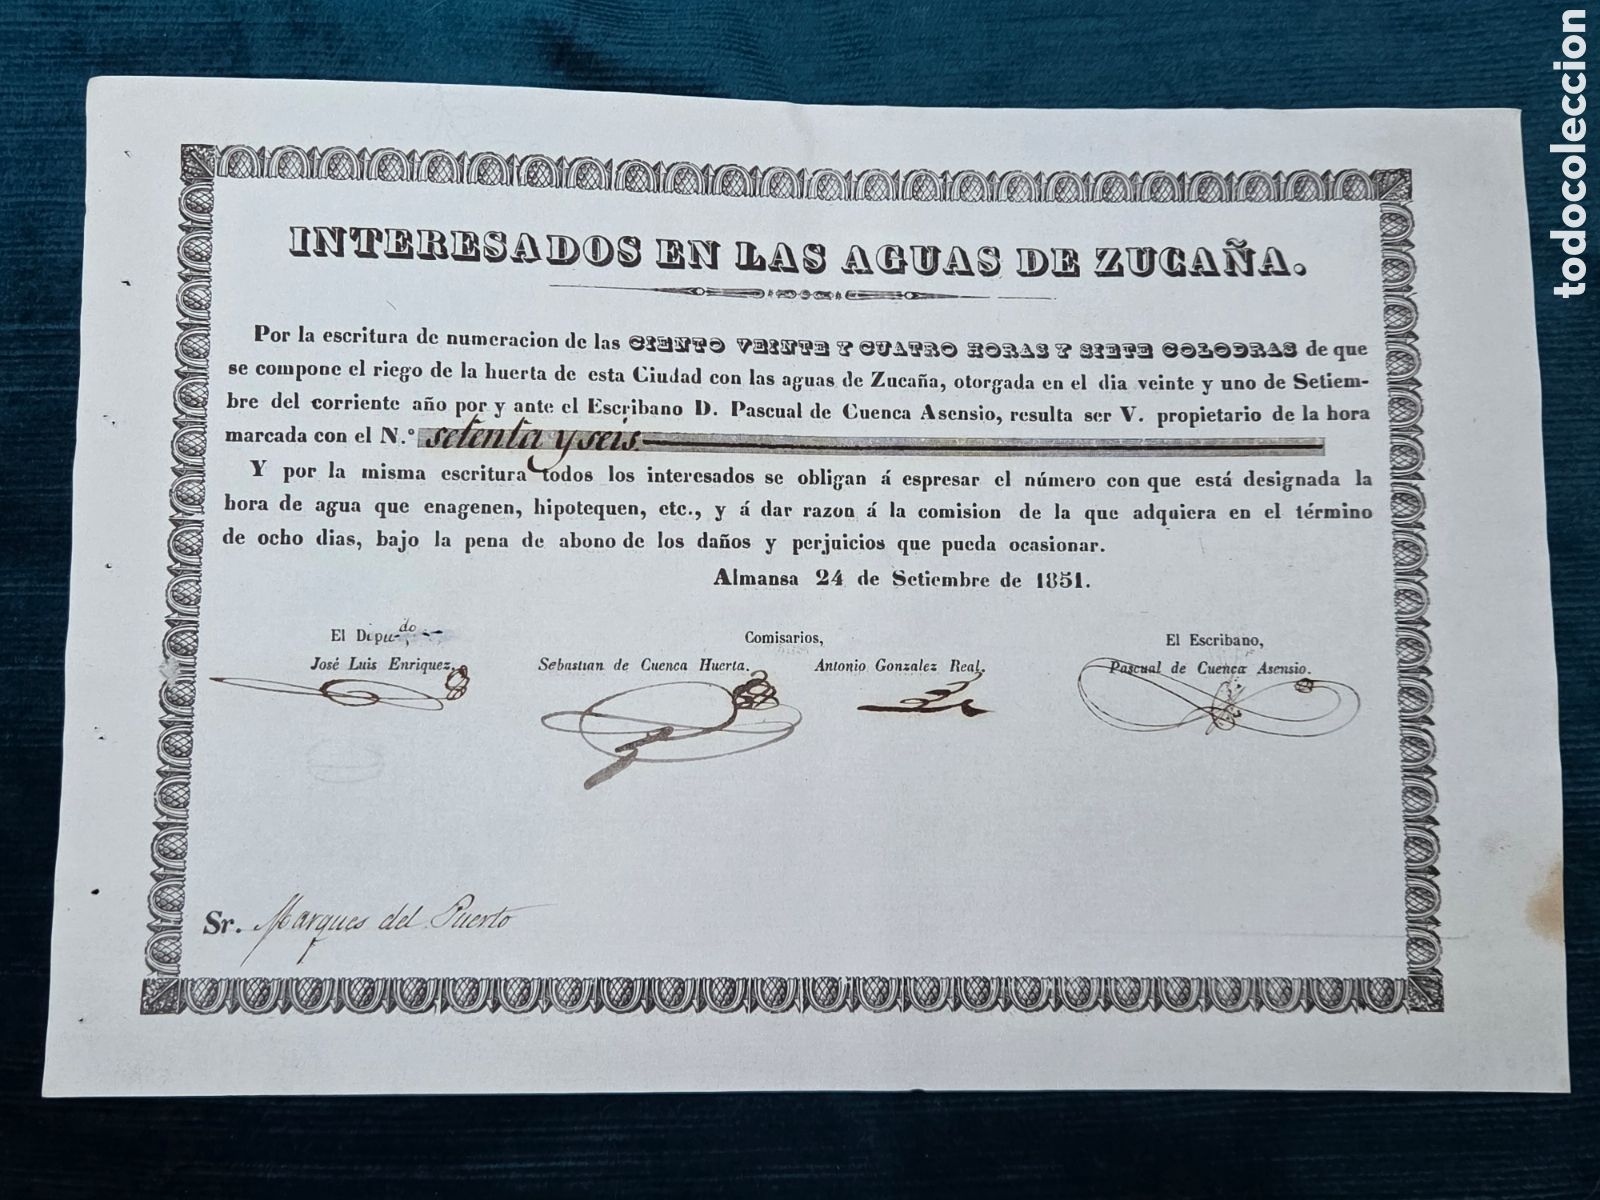 INTERESADOS EN LAS AGUAS DE ZUCAÑA.
Por la escritura de numeracion de las CIENTO VEINTE Y CUATRO HORAS Y SIETE COLODRAS de que
se compone el riego de la huerta de esta Ciudad con las aguas de Zucaña, otorgada en el dia veinte y uno de Setiem-
bre del corriente año por y ante el Escribano D. Pascual de Cuenca Asensio, resulta ser V. propietario de la hora
marcada con el N.º setenta y seis.
Y por la misma escritura todos los interesados se obligan á espresar el número con que está designada la
hora de agua que enagenen, hipotequen, etc., y á dar razon á la comision de la que adquiera en el término
de ocho dias, bajo la pena de abono de los daños y perjuicios que pueda ocasionar.
Almansa 24 de Setiembre de 1851.
El Dipudo Comisarios, El Escribano,
José Luis Enriquez. Sebastian de Cuenca Huerta. Antonio Gonzalez Real. Pascual de Cuenca Asensio.
Sr. Marques del Puerto
todocoleccion